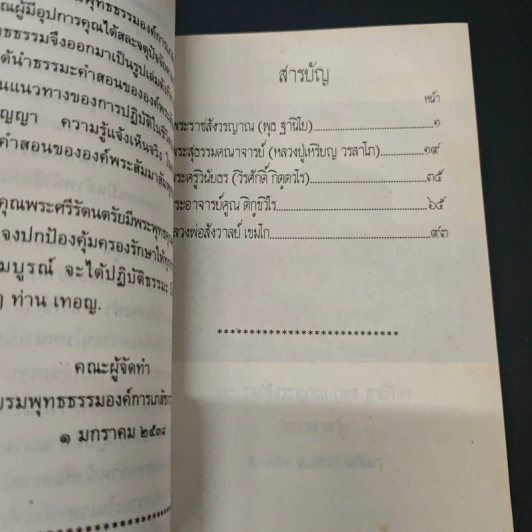 พุทธธรรมองค์การเภสัช
คณผู้มีอุปการคุณได้สละจตุปัจจัย
ทธธรรมจึงออกมาเป็นรูปเล่มดัง
ด้นำธรรมะคำสอนขององค์พระ
นแนวทางของการปฏิบัติในชีวิ
ัญญา ความรู้แจ้งเห็นจริง
คำสอนขององค์พระสัมมาสัม
คุณพระศรีรัตนตรัยมีพระพุทธคุ
จงปกป้องคุ้มครองรักษาให้ทุก
มบูรณ์ จะได้ปฏิบัติธรรมะ
ๆ ท่าน เทอญ.
คณะผู้จัดทำ
มรมพุทธธรรมองค์การเภสัช
๑ มกราคม ๒๕๓๘
สารบัญ
หน้า
พระราชสังวรญาณ (พุธ ฐานิโย)..........๑
พระสุธรรมคณาจารย์ (หลวงปู่เหรียญ วรลาโภ)..........๑๙
พระครูวินัยธร (วีรศักดิ์ กิตฺตวีโร)..........๓๕
ระอาจารย์คูณ ติกฺขวีโร..........๖๕
ลวงพ่อสังวาลย์ เขมโก..........๙๓
************************